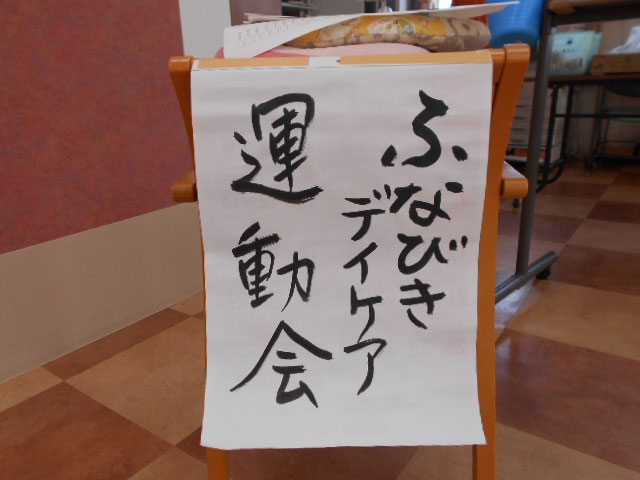 ふなびき
デイケア
運動会